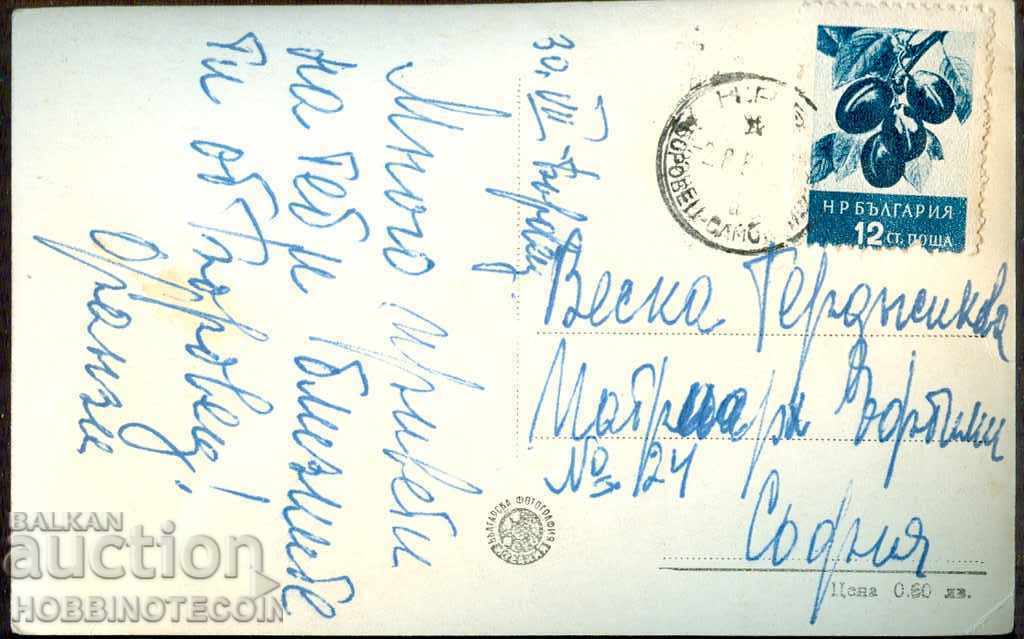 30.VIII - Боровец.
Много привети
на теб и близките
ти от Боровец!
Н Р БЪЛГАРИЯ
12 СТ. ПОЩА
БОРОВЕЦ-САМОК
Веска Герджикова
Патриарх Ефтими
№ 24
София
БЪЛГАРСКА ФОТОГРАФИЯ
Цена 0.80 лв.
BALKAN
auction
HOBBINOTECOIN